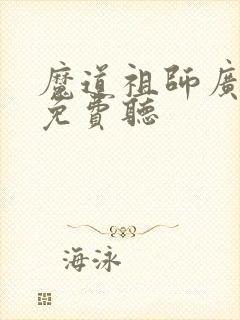 魔道祖師廣
免費聽
海泳